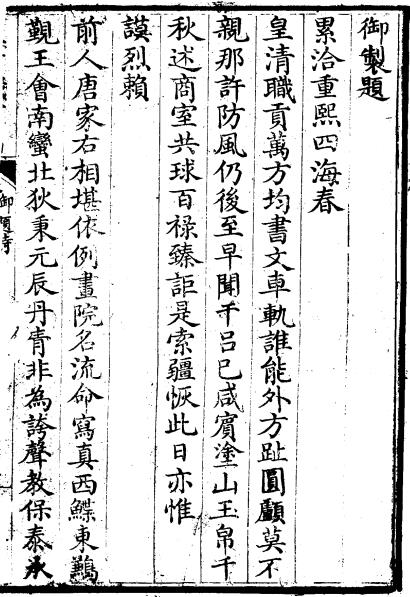 御製題
累洽重熙四海春
皇清職貢萬方均書文車軌誰能外方趾圓顱莫不
親那許防風仍後至早聞干呂已咸賓塗山玉帛千
秋述商室共球百祿臻詎是索疆恢此日亦惟
謨烈賴
前人唐家右相堪依例畫院名流命寫真西鰈東鶼
覲王會南蠻北狄秉元辰丹青非為誇聲教保泰承
御題詩